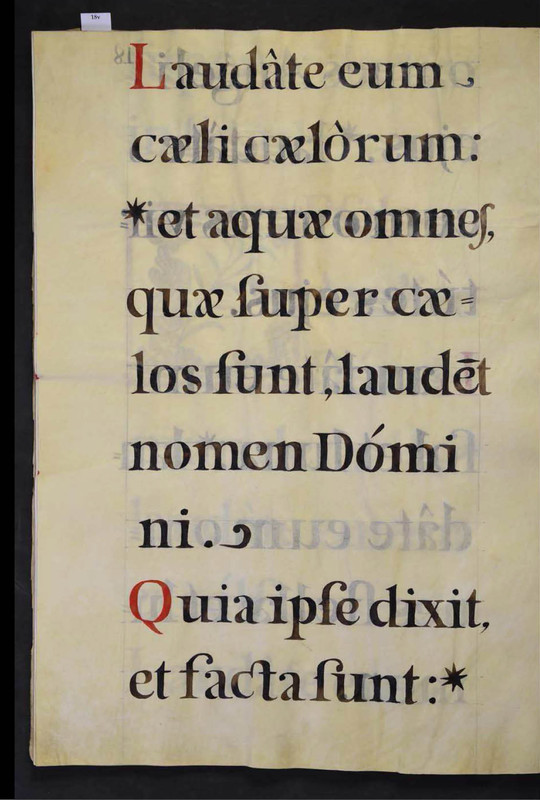 18v
Laudâte eum
cæli cælòrum:
*et aquæ omneſ,
quæ ſuper cæ=
los ſunt, laudēt
nomen Dómi
ni.
Quia ipſe dixit,
et facta ſunt:*